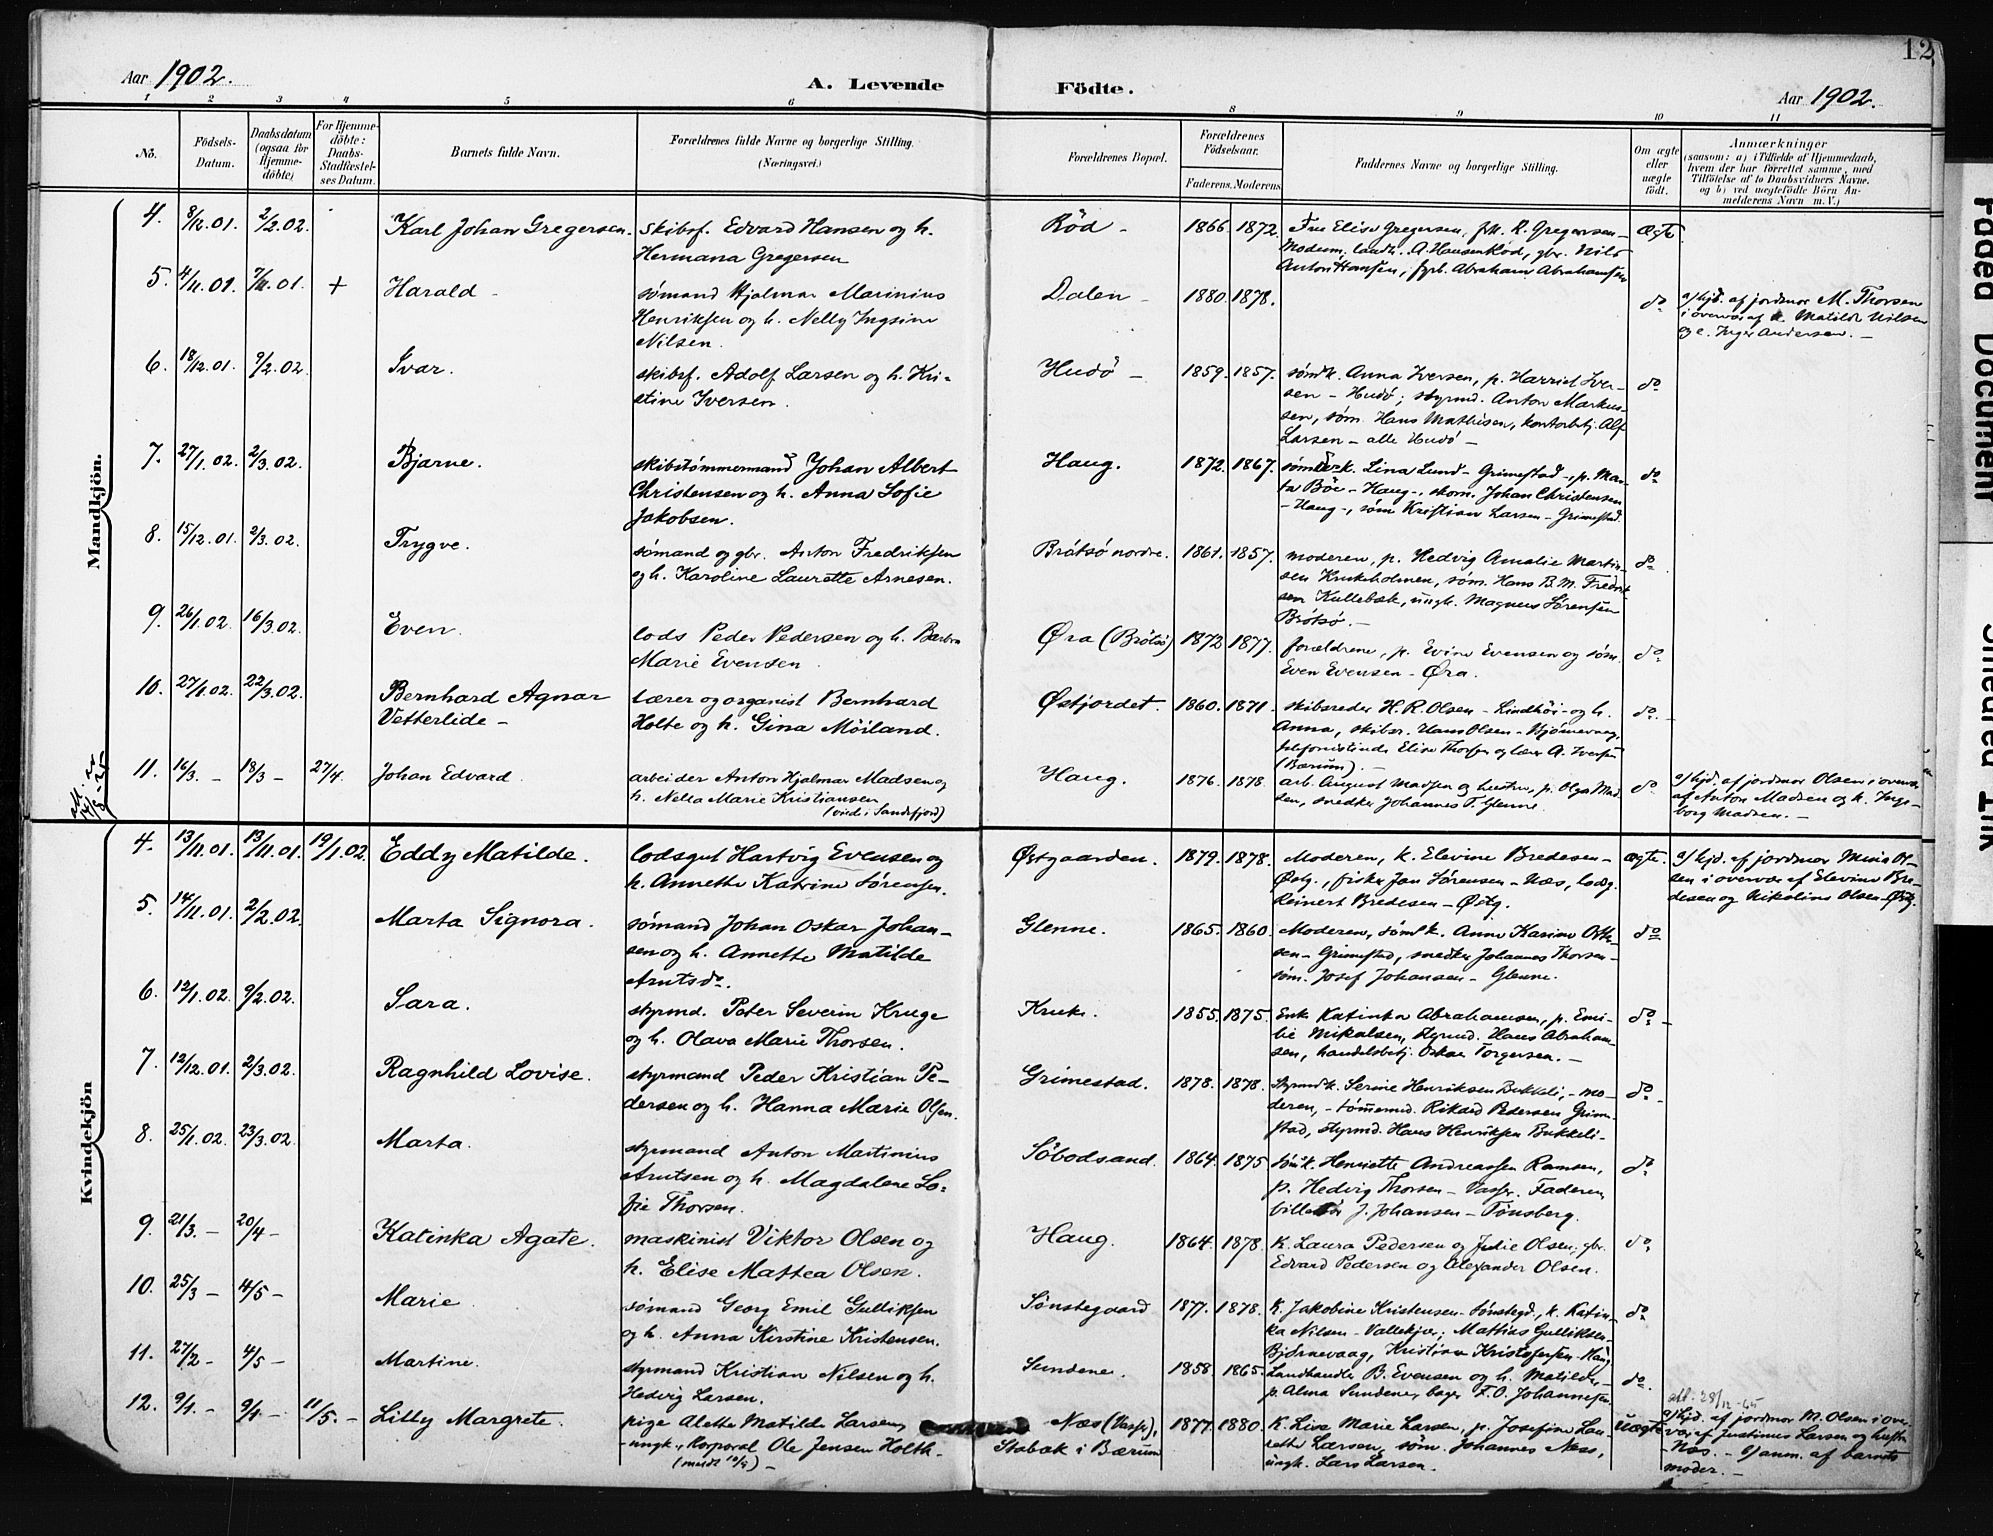 12
Aar 1902.
A. Levende Födte.
Aar 1902.
1 2 3 4 5 6 8 9 10 11
No.
Födsels-Datum.
Daabsdatum (ogsaa for Hjemme-döbte)
For Hjemme-döbte: Daabs-Stadfæstel-ses Datum.
Barnets fulde Navn.
Forældrenes fulde Navne og borgerlige Stilling. (Næringsvei.)
Forældrenes Bopæl.
Forældrenes Födselsaar.
Faderens. Moderens.
Faddernes Navne og borgerlige Stilling.
Om ægte eller uægte födt.
Anmærkninger
(saasom: a) i Tilfælde af Hjemmedaab,
hvem der har forrettet samme, med
Tilföielse af to Daabsvidners Navne,
og b) ved uægtefödte Börn An-
melderens Navn m. V.)
Mandkjön.
4. 8/12.01. 2/2.02. Karl Johan Gregersen. skibsf. Edvard Hansen og h. Röd - 1866. 1872. Fru Elise Gregersen, frk. R. Gregersen - ægte.
Hermana Gregersen
Modum, landh. A. Hansen Röd, gbr. Nils
Anton Hansen, fyrb. Abraham Abrahamsen
5. 4/11.01. 7/11.01. + Harald - sømand Hjalmar Marinius Dalen - 1880. 1878. do a/ hjd. af jordmor M. Thorsen
Henriksen og h. Nelly Ingsine
Nilsen.
i overvær af k. Matilde Nilsen
og e. Inger Andersen. -
6. 18/12.01. 9/2.02. Ivar. skibsf. Adolf Larsen og h. Kri- Hudö - 1859. 1857. sømdk. Anna Iversen, p. Harriet Iver- do
stine Iversen.
sen - Hudö; styrmd. Anton Markus-
sen, søm. Hans Mathisen, kontorbetj. Alf
Larsen - alle Hudö -
7. 27/1.02. 2/3.02. Bjarne. skibstømmermand Johan Albert Haug. 1872. 1867. Lina Lund - Grimestad -, p. Mar- do
Christensen og h. Anna Sofie
Jakobsen.
ta Böe - Haug -, skom. Johan Christensen
- Haug -, søm Kristian Larsen - Grimestad.
8. 15/12.01. 2/3.02. Trygve. sømand og gbr. Anton Fredriksen Brötsö nordre. 1861. 1857. moderen, p. Hedvig Amalie Martin- do
og h. Karoline Laurette Arnesen.
sen Krukeholmen, søm. Hans B. M. Fredrik-
sen Kullebæk, ungk. Magnus Sörensen
Brötsö. -
9. 26/1.02. 16/3.02. Even. lods Peder Pedersen og h. Barbra Øra (Brötsö) 1872 1877. forældrene, p. Evine Evensen og søm. do
Marie Evensen
Even Evensen - Øra.
10. 27/1.02. 22/3.02. Bernhard Agnar lærer og organist Bernhard Østjordet. 1860. 1871. skibsreder H. R. Olsen - Lindhöi - og h. do
Vetterlide - Holte og h. Gina Möiland.
Anna, skibsr. Hans Olsen - Hjönnevaag,
telefonistinde Elise Thorsen og lærer A. Iversen
(Bærum). -
11. 16/3. - 18/3 - 27/4. Johan Edvard. arbeider Anton Hjalmar Madsen og Haug. 1876. 1878 arb. August Madsen og hustru, p. Olga Mad- do a/ hjd. af jordmor Olsen i overvær
h. Nella Marie Kristiansen
(viede i Sandefjord)
sen, snedker Johannes T. Glenne.
af Anton Madsen og k. Inge-
borg Madsen. -
Kvindekjön
4. 13/11.01. 13/11.01. 19/1.02. Eddy Matilde. lodsgut Hartvig Evensen og Østgaarden. 1879. 1878. Moderen, k. Elevine Bredesen - ægte. a/ hjd. af jordmor Mina Ol-
h. Annette Katrine Sørensen.
Østg., fisker Jan Sörensen - Næs, lodsg.
Reinert Bredesen - Østg.
sen i overvær af Elevine Bre-
desen og Nikoline Olsen - Østg.
5. 14/11.01. 2/2.02. Marta Signora. sømand Johan Oskar Johan- Glenne. 1865. 1860. Moderen, sømk. Anne Karine Otte- do
sen og h. Annette Matilde
Arntsdr.
sen - Grimestad, snedker Johannes Thorsen -
søm. Josef Johansen - Glenne.
6. 12/1.02. 9/2.02. Sara. styrmd. Peter Severin Kruge Kruke. 1855. 1875. Enke Katinka Abrahamsen, p. Emi- do
og h. Olava Marie Thorsen.
lie Mikalsen, styrmd. Hans Abraham-
sen, handelsbetj. Oskar Torgersen. -
7. 12/12.01. 2/3.02. Ragnhild Lovise. styrmand Peder Kristian Pe- Grimestad. 1878. 1878. styrmdk. Serine Henriksen Bukkeli, - mo- do
dersen og h. Hanna Marie Olsen.
deren, - tømmermd. Rikard Pedersen Grim-
stad, styrmd. Hans Henriksen Bukkeli -
8. 25/1.02. 23/3.02. Marta. styrmand Anton Martinius Söbodsand. 1864. 1875 Henriette Andreassen Ramsen, do
Arntsen og h. Magdalene So-
fie Thorsen.
p. Hedvig Thorsen - Vasser. Faderen,
J. Johansen - Tönsberg.
9. 21/3. - 20/4 - Katinka Agate. maskinist Viktor Olsen og Haug. 1864. 1878. K. Laura Pedersen og Julie Olsen, gbr. do
h. Elise Mattea Olsen.
Edvard Pedersen og Alexander Olsen.
10. 25/3 - 4/5 - Marie sømand Georg Emil Gulliksen Sönstegaard 1877. 1878. K. Jakobine Kristensen - Sönstegd., k. Katin- do
og h. Anna Kirstine Kristensen.
ka Nilsen - Vallekjær; Mattias Gulliksen -
Björnevaag, Kristian Kristofersen - Haug
11. 27/2 - 4/5 - Martine. styrmand Kristian Nilsen og h. Sundene. 1858. 1865. Landhandler B. Evensen og h. Matilde, - do
Hedvig Larsen.
p. Alma Sundene, bager F. O. Johannesen.
att. 28/12-45
12. 9/4. - 9/4 - 11/5. - Lilly Margrete. pige Alette Matilde Larsen, Næs (Vasser), 1877. 1880. K. Lise Marie Larsen, p. Josefine Lau- uægte a/ hjd. af jordmor M. Olsen i over-
- ungk., korporal Ole Jensen Holth - Stabæk i Bærum
rette Larsen, søm. Johannes Næss,
ungk. Lars Larsen.
vær af Justinus Larsen og hustru
- Næs. - b/ anm. af barnets
moder. -
Faded Document